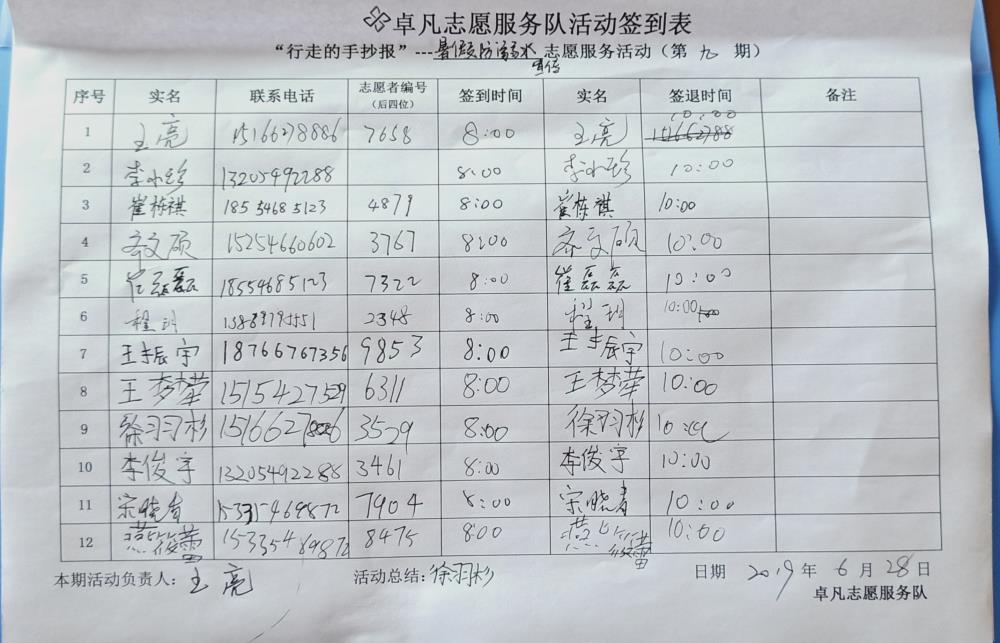 卓凡志愿服务队活动签到表
“行走的手抄报”---暑假防溺水宣传 志愿服务活动（第 九 期）
序号 实名 联系电话 志愿者编号（后四位） 签到时间 实名 签退时间 备注
1 王亮 15166278886 7658 8:00 王亮 10:00
2 李小珍 13205492288 8:00 李小珍 10:00
3 崔栋祺 18554685123 4879 8:00 崔栋祺 10:00
4 齐文硕 15254660602 3767 8:00 齐文硕 10:00
5 崔磊磊 18554685123 7322 8:00 崔磊磊 10:00
6 程玥 2348 8:00 程玥 10:00
7 王振宇 18766767356 9853 8:00 王振宇 10:00
8 王梦华 1515427529 6311 8:00 王梦华 10:00
9 徐羽杉 3529 8:00 徐羽杉 10:00
10 李俊宇 13205492288 3461 8:00 李俊宇 10:00
11 宋晓青 15335469872 7904 8:00 宋晓青 10:00
12 燕筱蕾 15335469872 8475 8:00 燕筱蕾 10:00
本期活动负责人：王亮 活动总结：徐羽杉 日期 2019 年 6 月 28 日
卓凡志愿服务队